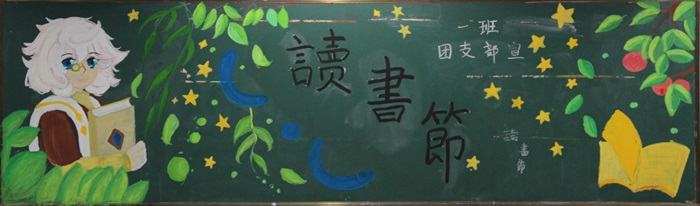 讀書節
一班
团支部宣
讀書節